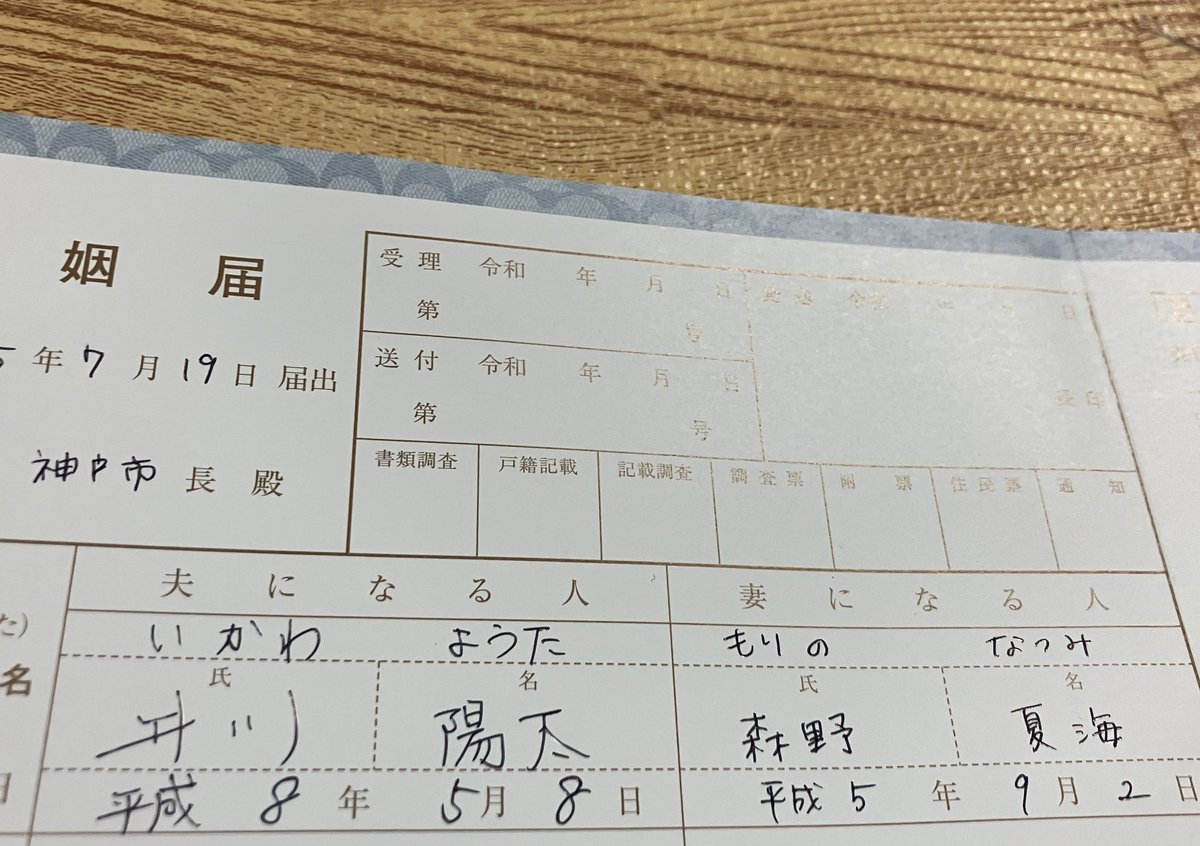 姻 届
5 年 7 月 19 日 届出
神戸市 長 殿
受 理 令和 年 月 日
第 号
発 送 令和 年 月 日
送 付 令和 年 月 日
第 号
長 印
書類調査 戸籍記載 記載調査 調査票 附票 住民票 通知
夫になる人 妻になる人
た)
いかわ ようた もりの なつみ
名
氏 名 氏 名
井川 陽太 森野 夏海
日
平成 8 年 5 月 8 日 平成 5 年 9 月 2 日